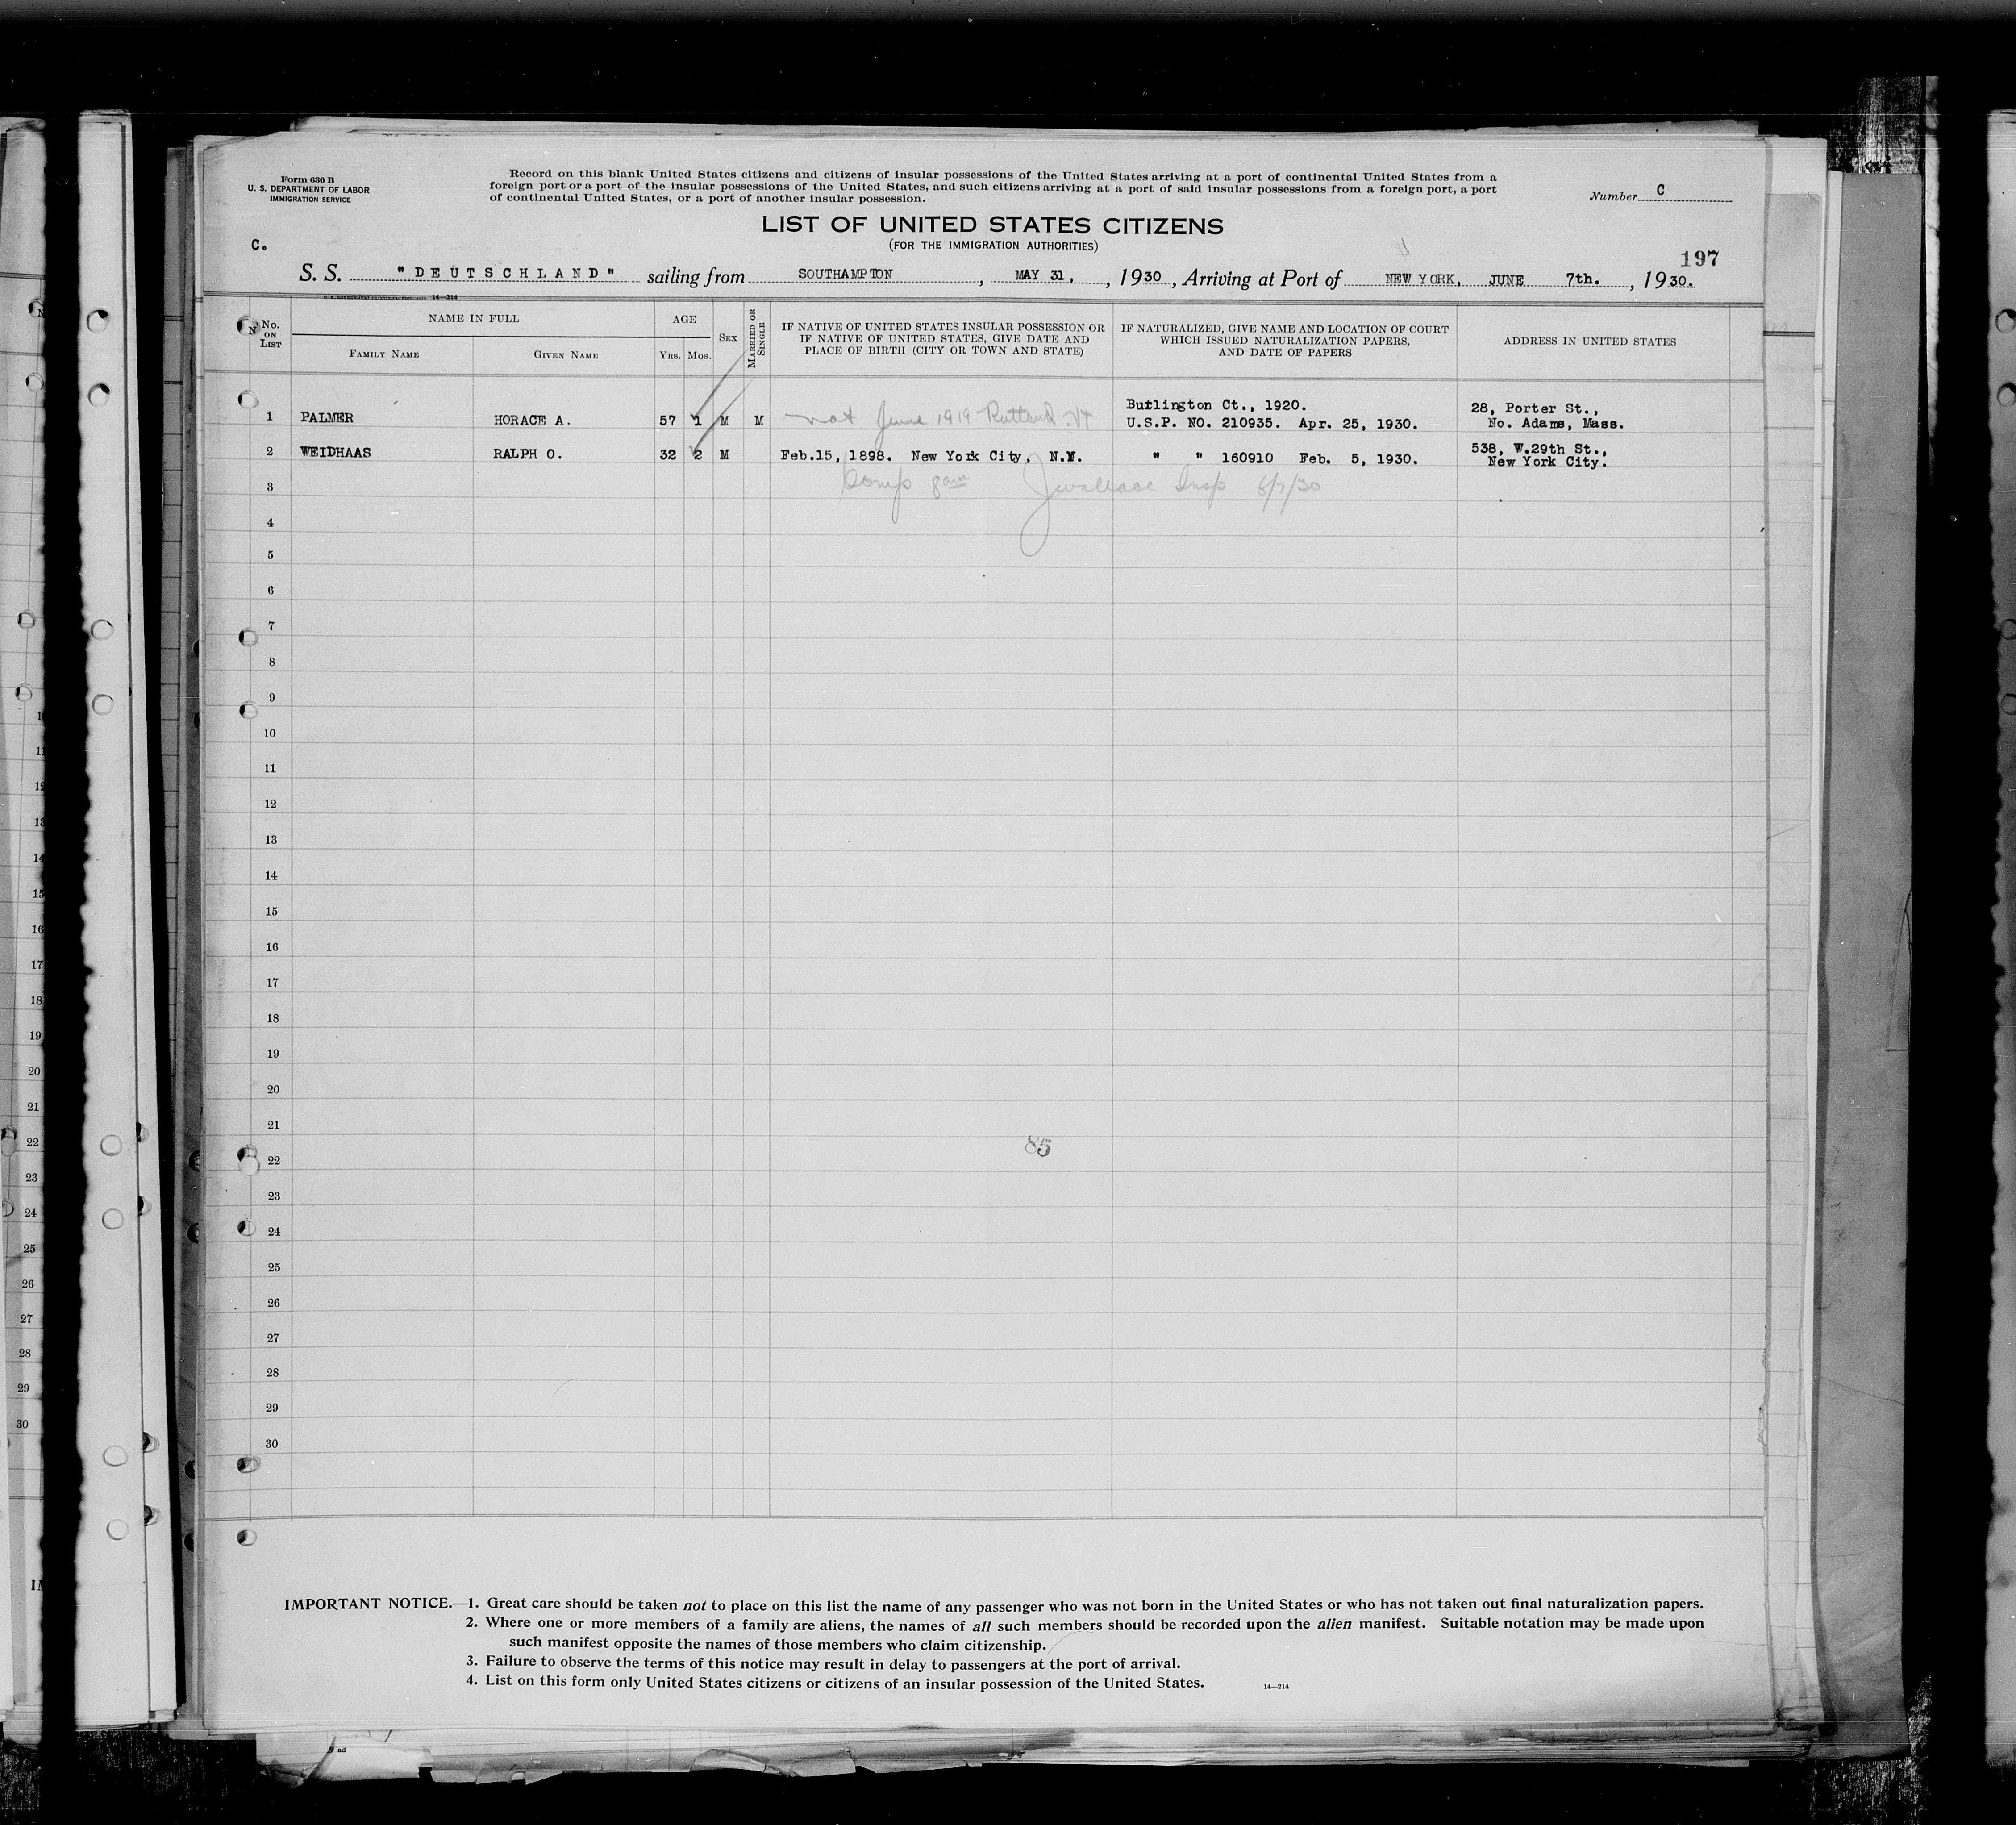 Form 630 B
U. S. DEPARTMENT OF LABOR
IMMIGRATION SERVICE
Record on this blank United States citizens and citizens of insular possessions of the United States arriving at a port of continental United States from a
foreign port or a port of the insular possessions of the United States, and such citizens arriving at a port of said insular possessions from a foreign port, a port
of continental United States, or a port of another insular possession.
Number C
LIST OF UNITED STATES CITIZENS
(FOR THE IMMIGRATION AUTHORITIES)
C.
197
S. S. "DEUTSCHLAND" sailing from SOUTHAMPTON, MAY 31, 1930, Arriving at Port of NEW YORK, JUNE 7th., 1930.
14—214
No. ON LIST
NAME IN FULL
FAMILY NAME
GIVEN NAME
AGE
YRS. MOS.
SEX
MARRIED OR SINGLE
IF NATIVE OF UNITED STATES INSULAR POSSESSION OR
IF NATIVE OF UNITED STATES, GIVE DATE AND
PLACE OF BIRTH (CITY OR TOWN AND STATE)
IF NATURALIZED, GIVE NAME AND LOCATION OF COURT
WHICH ISSUED NATURALIZATION PAPERS,
AND DATE OF PAPERS
ADDRESS IN UNITED STATES
1 PALMER HORACE A. 57 1 M M nat June 1919 Rutland Vt
Burlington Ct., 1920.
U.S.P. NO. 210935. Apr. 25, 1930.
28, Porter St.,
No. Adams, Mass.
2 WEIDHAAS RALPH O. 32 2 M Feb.15, 1898. New York City, N.Y. " " 160910 Feb. 5, 1930.
538, W.29th St.,
New York City.
3 Comp 8am J Wallace Insp 6/7/30
4
5
6
7
8
9
10
11
12
13
14
15
16
17
18
19
20
21
85
22
23
24
25
26
27
28
29
30
IMPORTANT NOTICE.—1. Great care should be taken not to place on this list the name of any passenger who was not born in the United States or who has not taken out final naturalization papers.
2. Where one or more members of a family are aliens, the names of all such members should be recorded upon the alien manifest. Suitable notation may be made upon
such manifest opposite the names of those members who claim citizenship.
3. Failure to observe the terms of this notice may result in delay to passengers at the port of arrival.
4. List on this form only United States citizens or citizens of an insular possession of the United States.
14—214